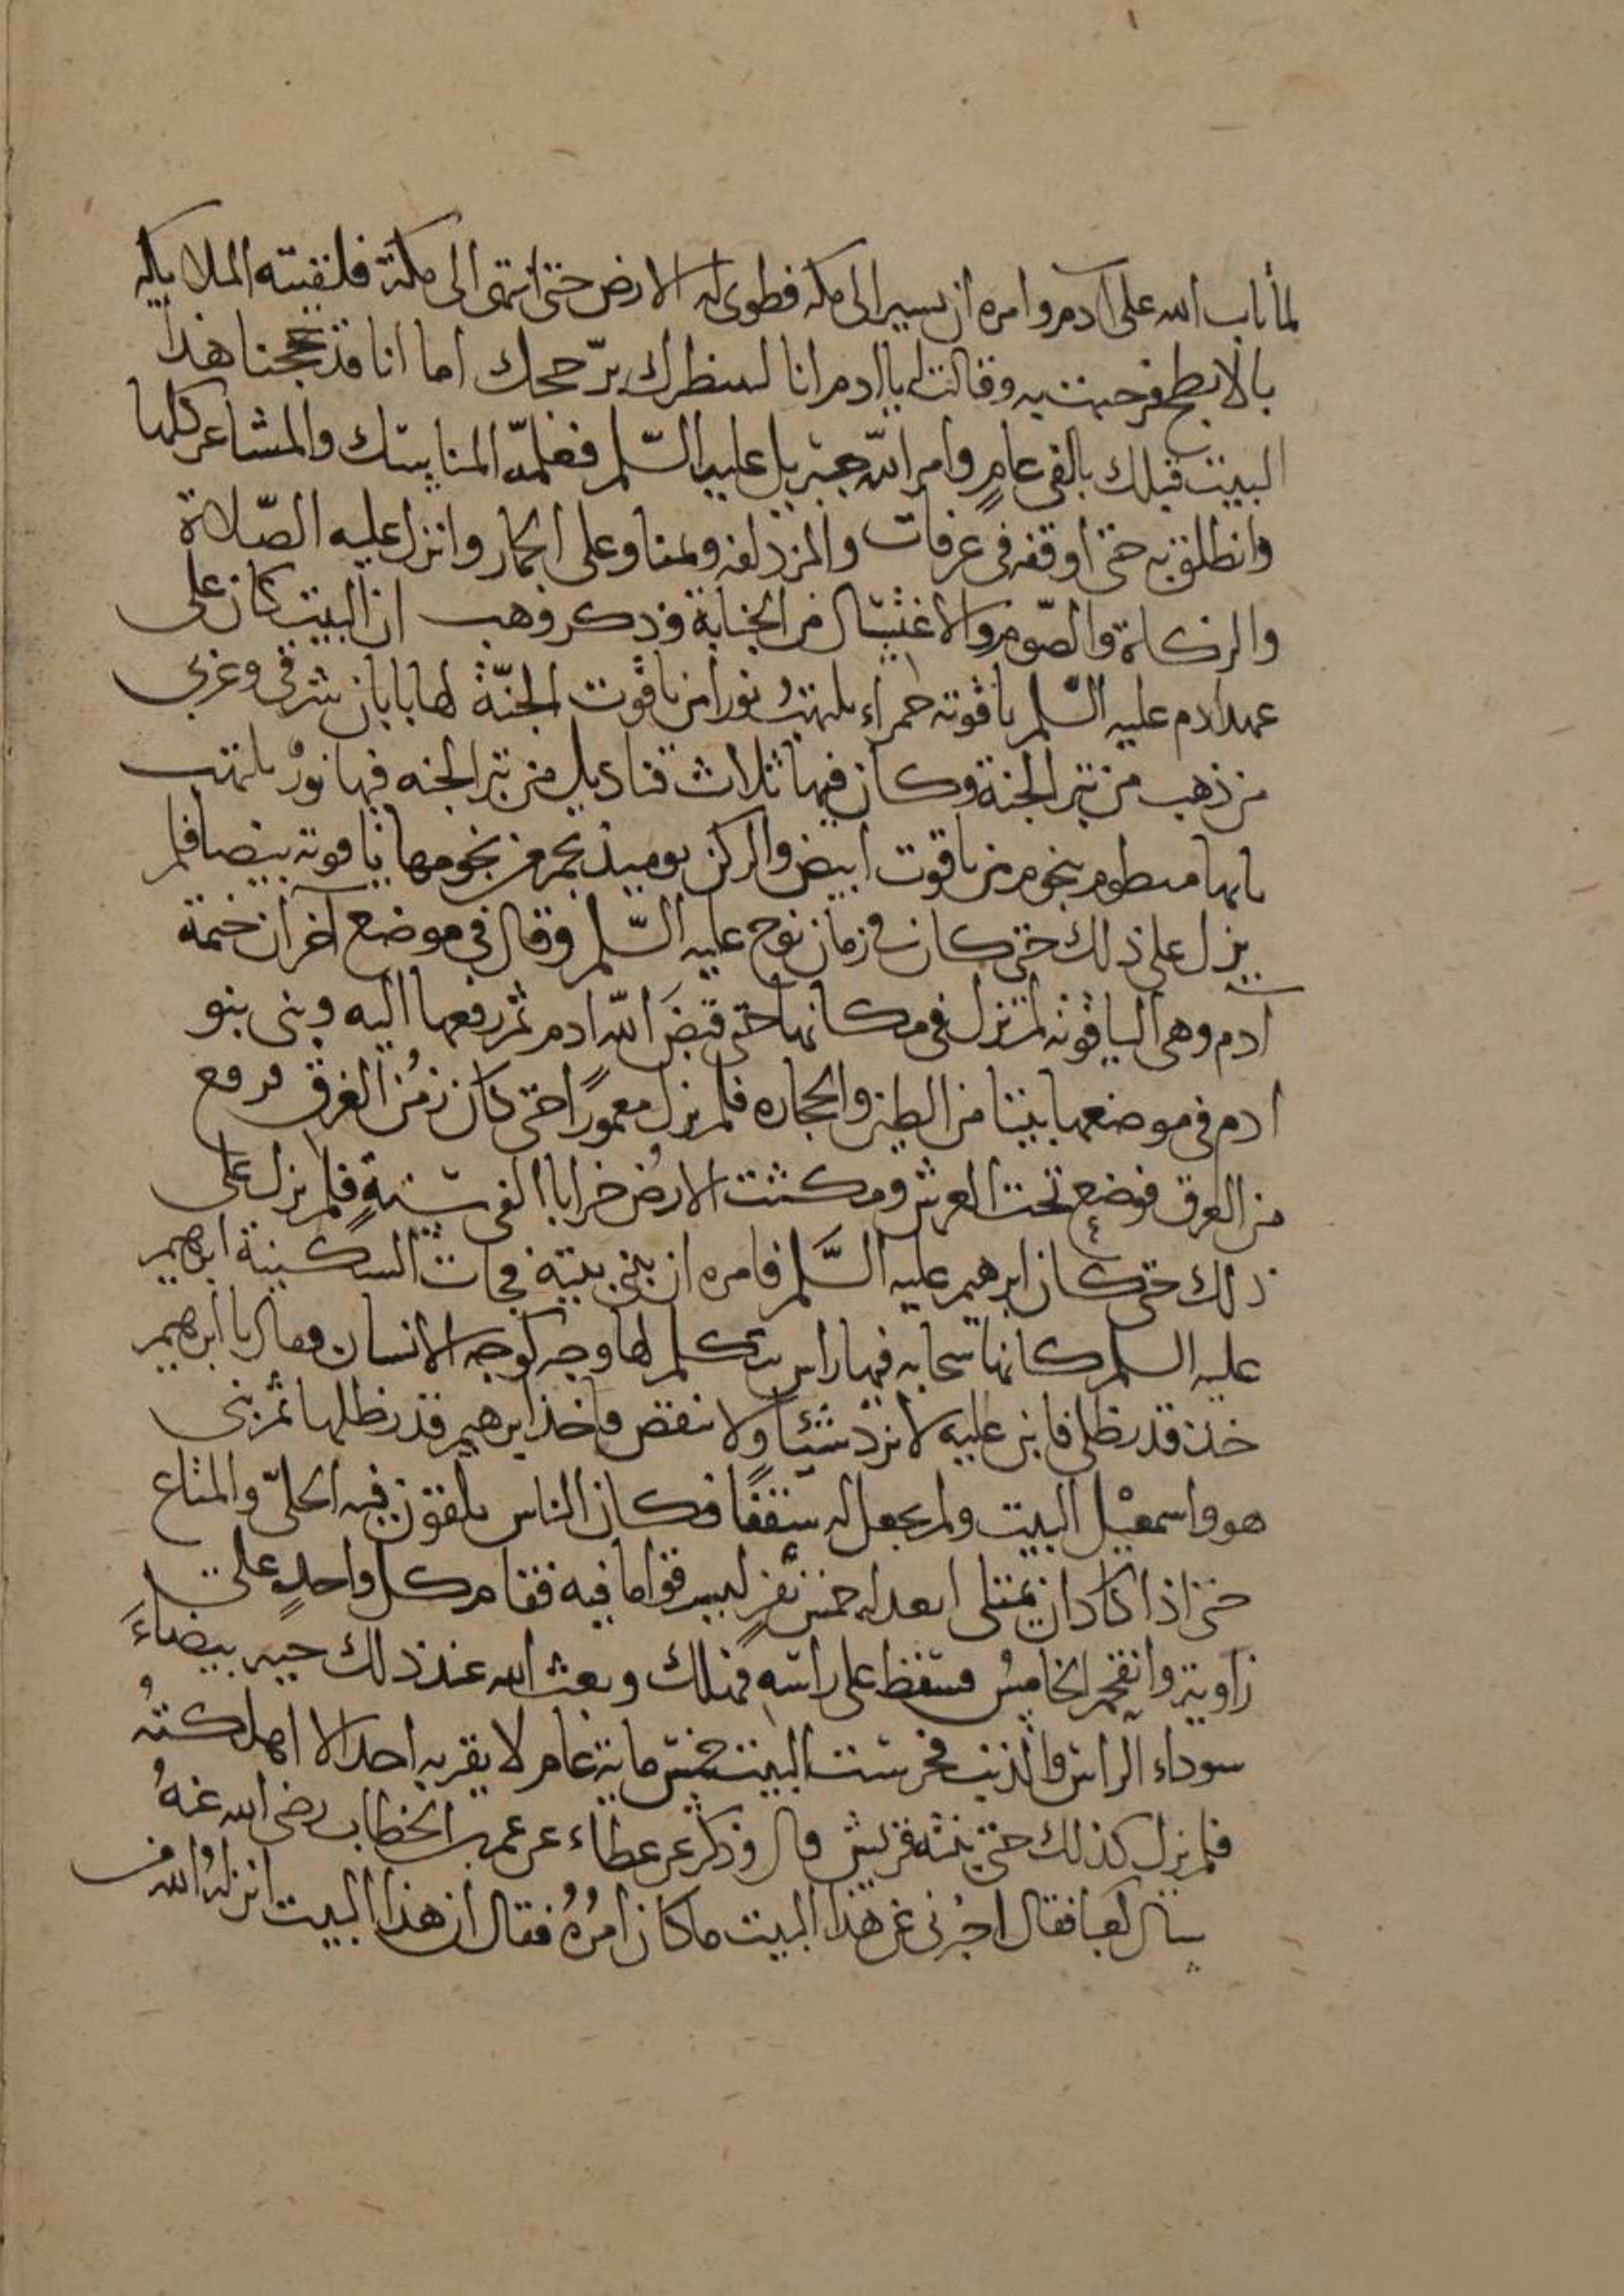 لما تاب الله على ادم وامره ان يسير الى مكه فطوى له الارض حتى انتهى الى مكة فلقيته الملايكه
بالابطح فرحبت به وقالت له يا ادم انا لننظرك برّ حجك اما انا قد حججنا هذا
البيت قبلك بالفى عام وامر الله جبريل عليه السّلم فعلمّه المناسك والمشاعر كلها
وانطلق به حتى اوقفه فى عرفات والمزدلفه وبمنا وعلى الجمار وانزل عليه الصّلاة
والزكاة والصّوم والاغتسال من الجنابة وذكر وهب ان البيت كان على
عهد ادم عليه السّلم ياقوته حمراء يلتهبُ نورا من ياقوت الجنّة لها بابان شرقى وغربى
من ذهب من تبر الجنة وكان فيها ثلاث قناديل من تبر الجنه فيها نورٌ يلتهب
بابها منظوم بنجوم من ياقوت ابيض والركن يوميذ نجم من نجومها ياقوته بيضا فلم
يزل على ذلك حتى كان فى زمان نوح عليه السّلم وقال فى موضع آخر ان خيمة
آدم وهى الياقوته لم تزل فى مكانها حتى قبضَ الله ادم ثم رفعها اليه وبنى بنو
ادم فى موضعها بيتا من الطين والحجاره فلم يزل معمورًا حتى كان زمن الغرق فرفع
من الغرق فوضع تحت العرش ومكثت الارض خرابا الفى سنةٍ فلم يزل على
ذلك حتى كان ابرهيم عليه السَّلم فامره ان يبنى بيته فجات السكينة ابرهيم
عليه السلم كانها سحابه فيها راس يتكلم لها وجه كوجه الانسان فقال يا ابرهيم
خذ قدر ظلى فابن عليه لا تزد شيئا ولا تنقص فاخذ ابرهيم قدر ظلها ثم بنى
هو واسمعيل البيت ولم يجعل له سقفًا فكان الناس يلقون فيه الحلىّ والمتاع
حتى اذا كاد ان يمتلى ابعد له خمس نفرٍ ليسرقوا ما فيه فقام كل واحدٍ على
زاوية وانقحم الخامسُ فسقط على راسه فهلك وبعث الله عند ذلك حيه بيضاءَ
سوداء الراس والذنب فحرست البيت خمس ماية عام لا يقربه احد الا اهلكتهُ
فلم يزل كذلك حتى بنته قريش قال وذكر عن عطاء عن عمر بن الخطاب رضى الله عنهُ
سال كعبا فقال اخبرنى عن هذا البيت ما كان امرُهُ فقال ان هذا البيت انزله الله من